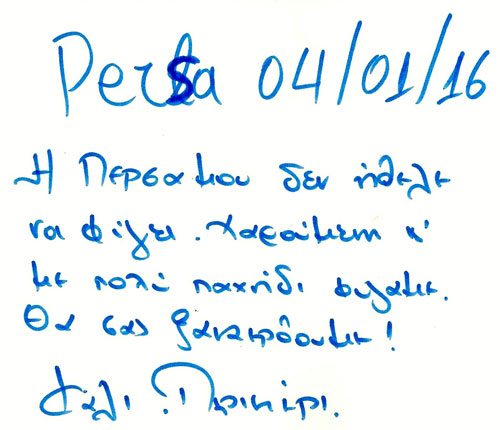 Persa 04/01/16
Η Περσα μου δεν ήθελε
να φύγει. Χαρούμενη κ'
με πολύ παχνίδι φυγαμε.
Θα σας ξαναερθουμε!